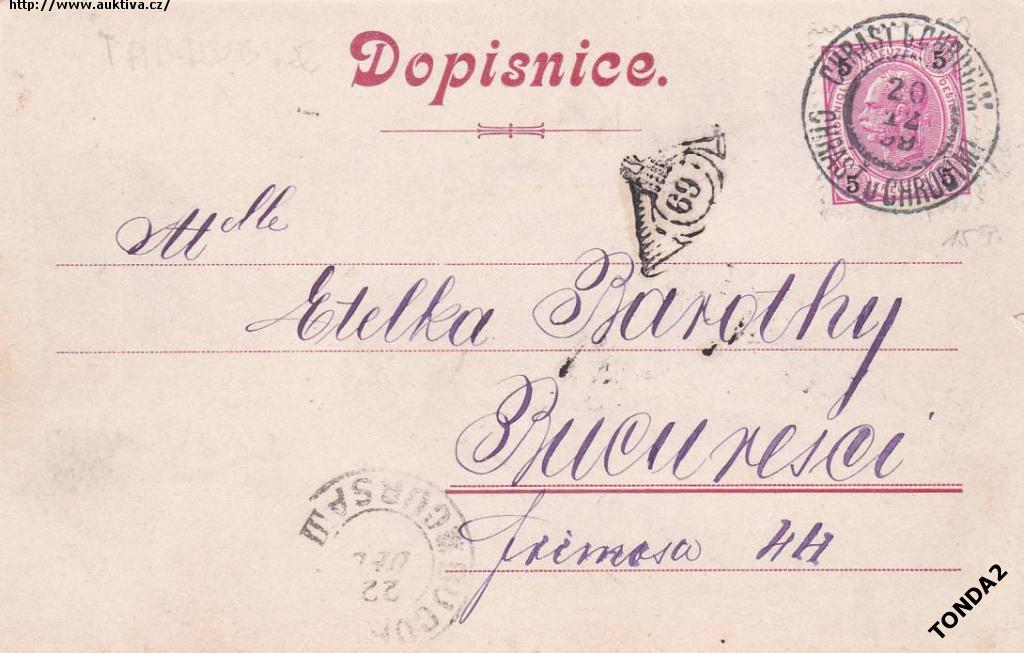 http://www.auktiva.cz/
Dopisnice.
CHRAST b. CHRUDIM
20
12
98
CHRAST u CHRUDIMI
5
5
5
5
69
15 P.
Mlle
Etelka Barothy
Bucuresci
Frimosa 44
CURSA III
22
DEC
BUCUR
TONDA2